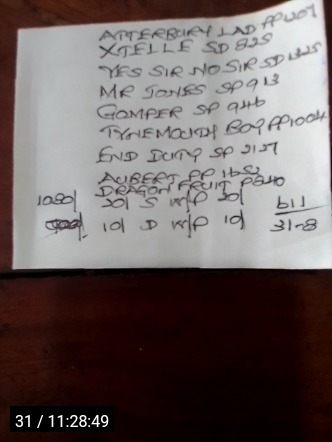 ATTERBURY LAD PP 1207
XTELLE SD 825
YES SIR NO SIR SD 1325
MR JONES SP 913
GOMPER SP 946
TYNEMOUTH BOY PP 1004
END DUTY SP 2127
AUBERT PP 1652
DRAGON FRUIT P 8240
1080/ 20/ S W/P 20/ b11
10/ D W/P 10/ 31-8
31 / 11:28:49